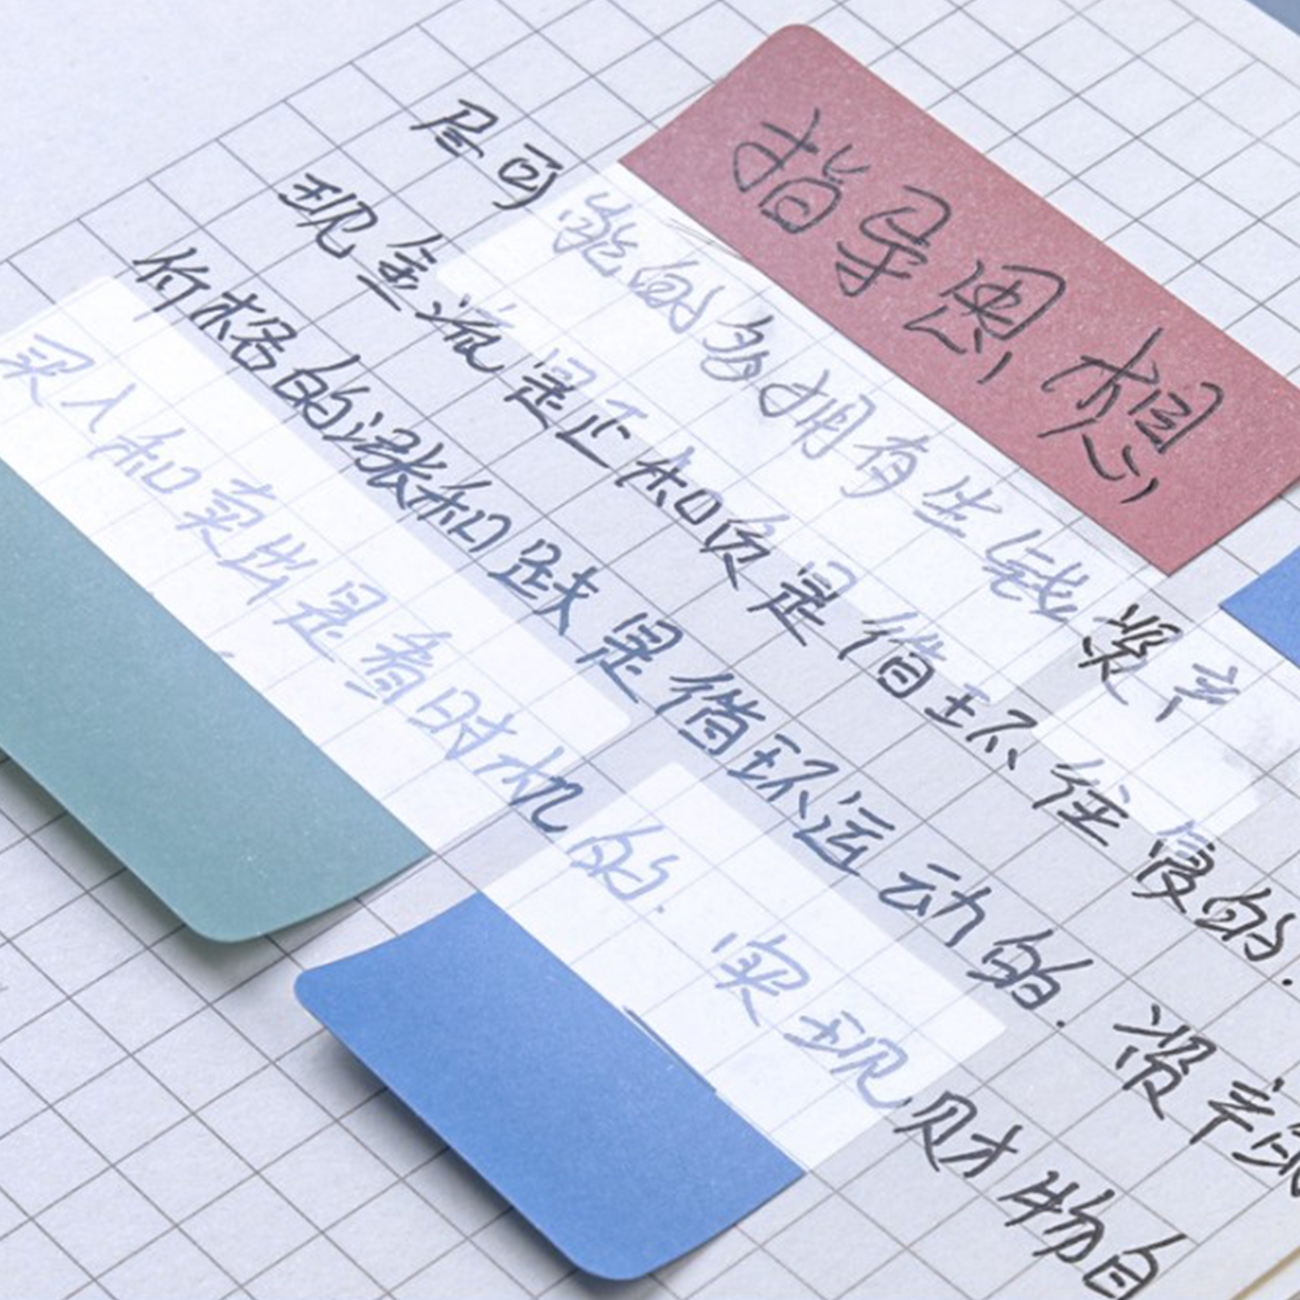 指导思想
尽可能的多拥有生钱资产
现金流是正和负是循环往复的.
价格的涨和跌是循环运动的. 资产的
买入和卖出是看时机的. 实现财物自